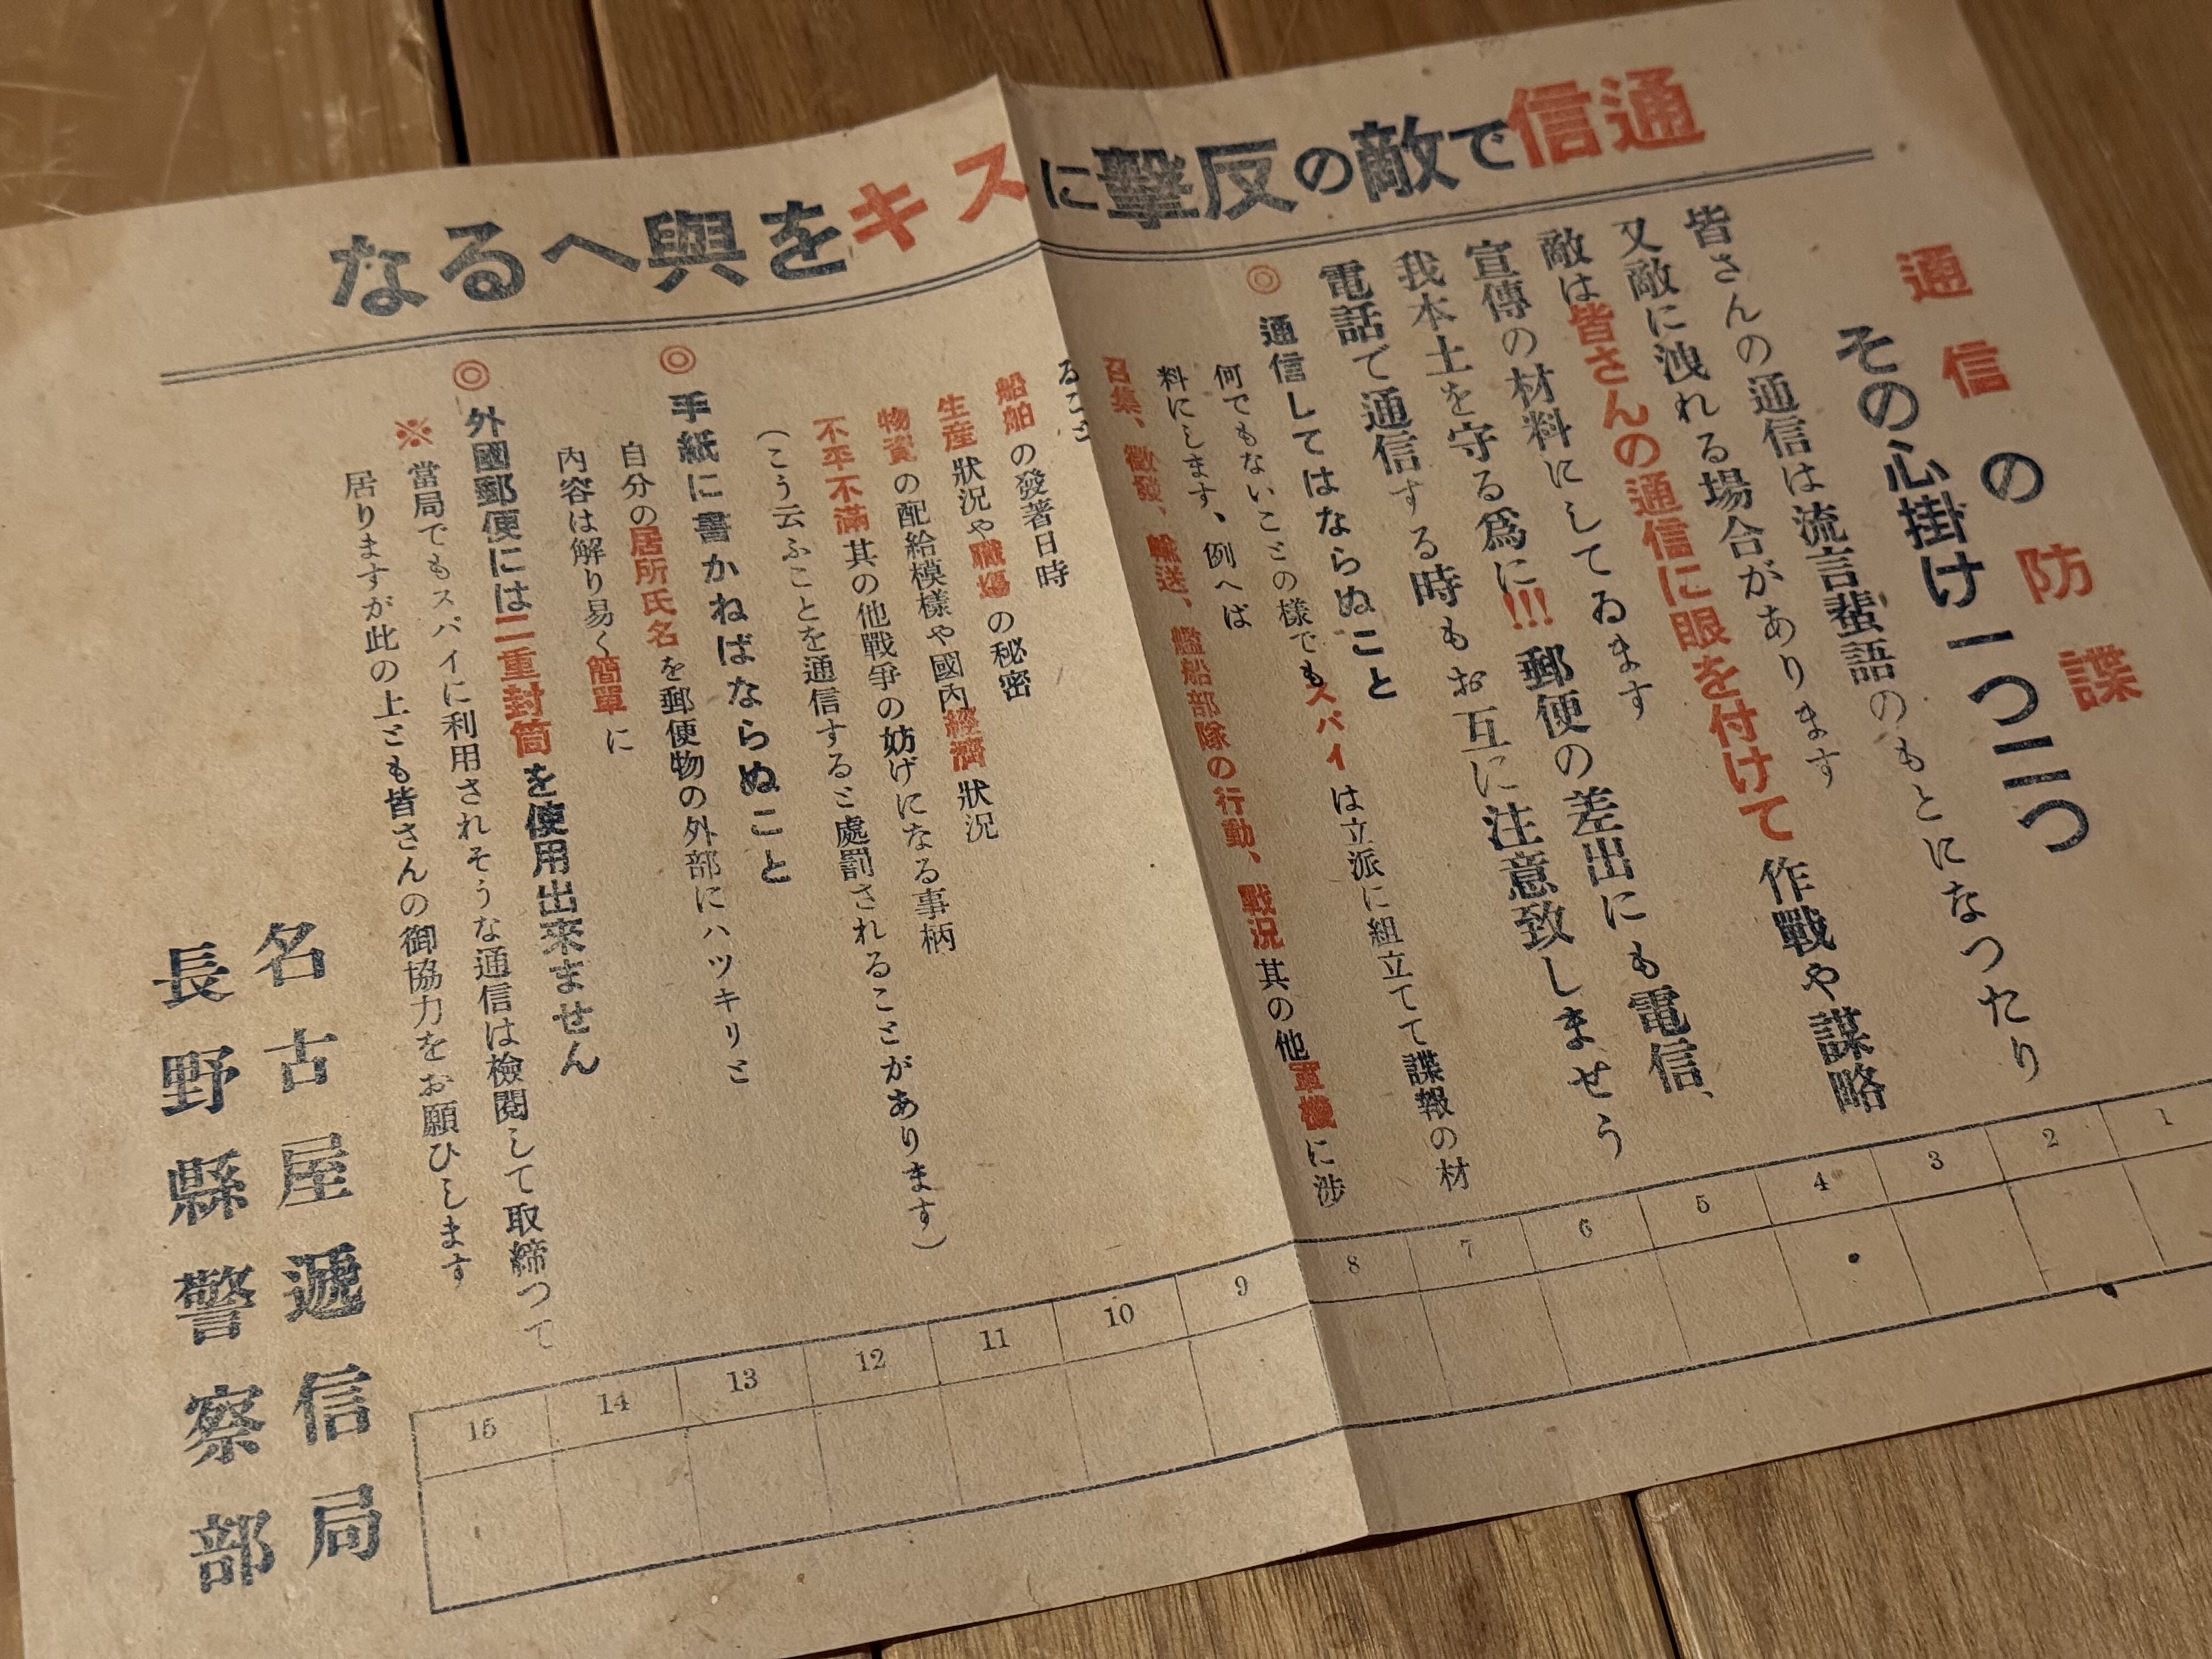 通信で敵の反撃にスキを與へるな
通信の防諜
その心掛け一つ二つ
皆さんの通信は流言蜚語のもとになつたり
又敵に洩れる場合があります
敵は皆さんの通信に眼を付けて作戰や謀略
宣傳の材料にしてゐます
我本土を守る爲に!!!郵便の差出にも電信、
電話で通信する時もお互に注意致しませう
◎通信してはならぬこと
何でもないことの様でもスパイは立派に組立てて諜報の材
料にします、例へば
召集、徵發、輸送、艦船部隊の行動、戰況其の他軍機に渉
ること
船舶の發著日時
生産狀況や職場の秘密
物資の配給模樣や國内經濟狀況
不平不滿其の他戰爭の妨げになる事柄
(こう云ふことを通信すると處罰されることがあります)
◎手紙に書かねばならぬこと
自分の居所氏名を郵便物の外部にハツキリと
内容は解り易く簡單に
◎外國郵便には二重封筒を使用出來ません
※當局でもスパイに利用されそうな通信は檢閱して取締つて
居りますが此の上とも皆さんの御協力をお願ひします
名古屋遞信局
長野縣警察部
1
2
3
4
5
6
7
8
9
10
11
12
13
14
15